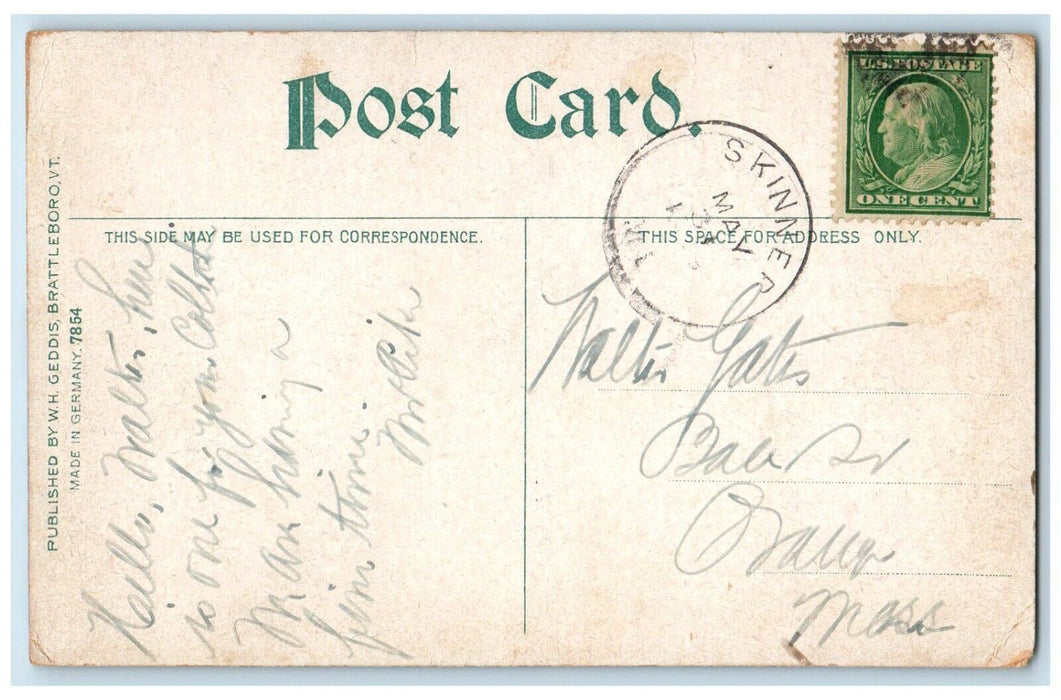 Post Card.
U.S. POSTAGE
ONE CENT
SKINNER
MAY
THIS SIDE MAY BE USED FOR CORRESPONDENCE.
THIS SPACE FOR ADDRESS ONLY.
PUBLISHED BY W.H. GEDDIS, BRATTLEBORO, VT.
MADE IN GERMANY. 7854
Hello, Walter, here
is one for your
We are having a
fine time.
Walter Gates
Orange
Mass